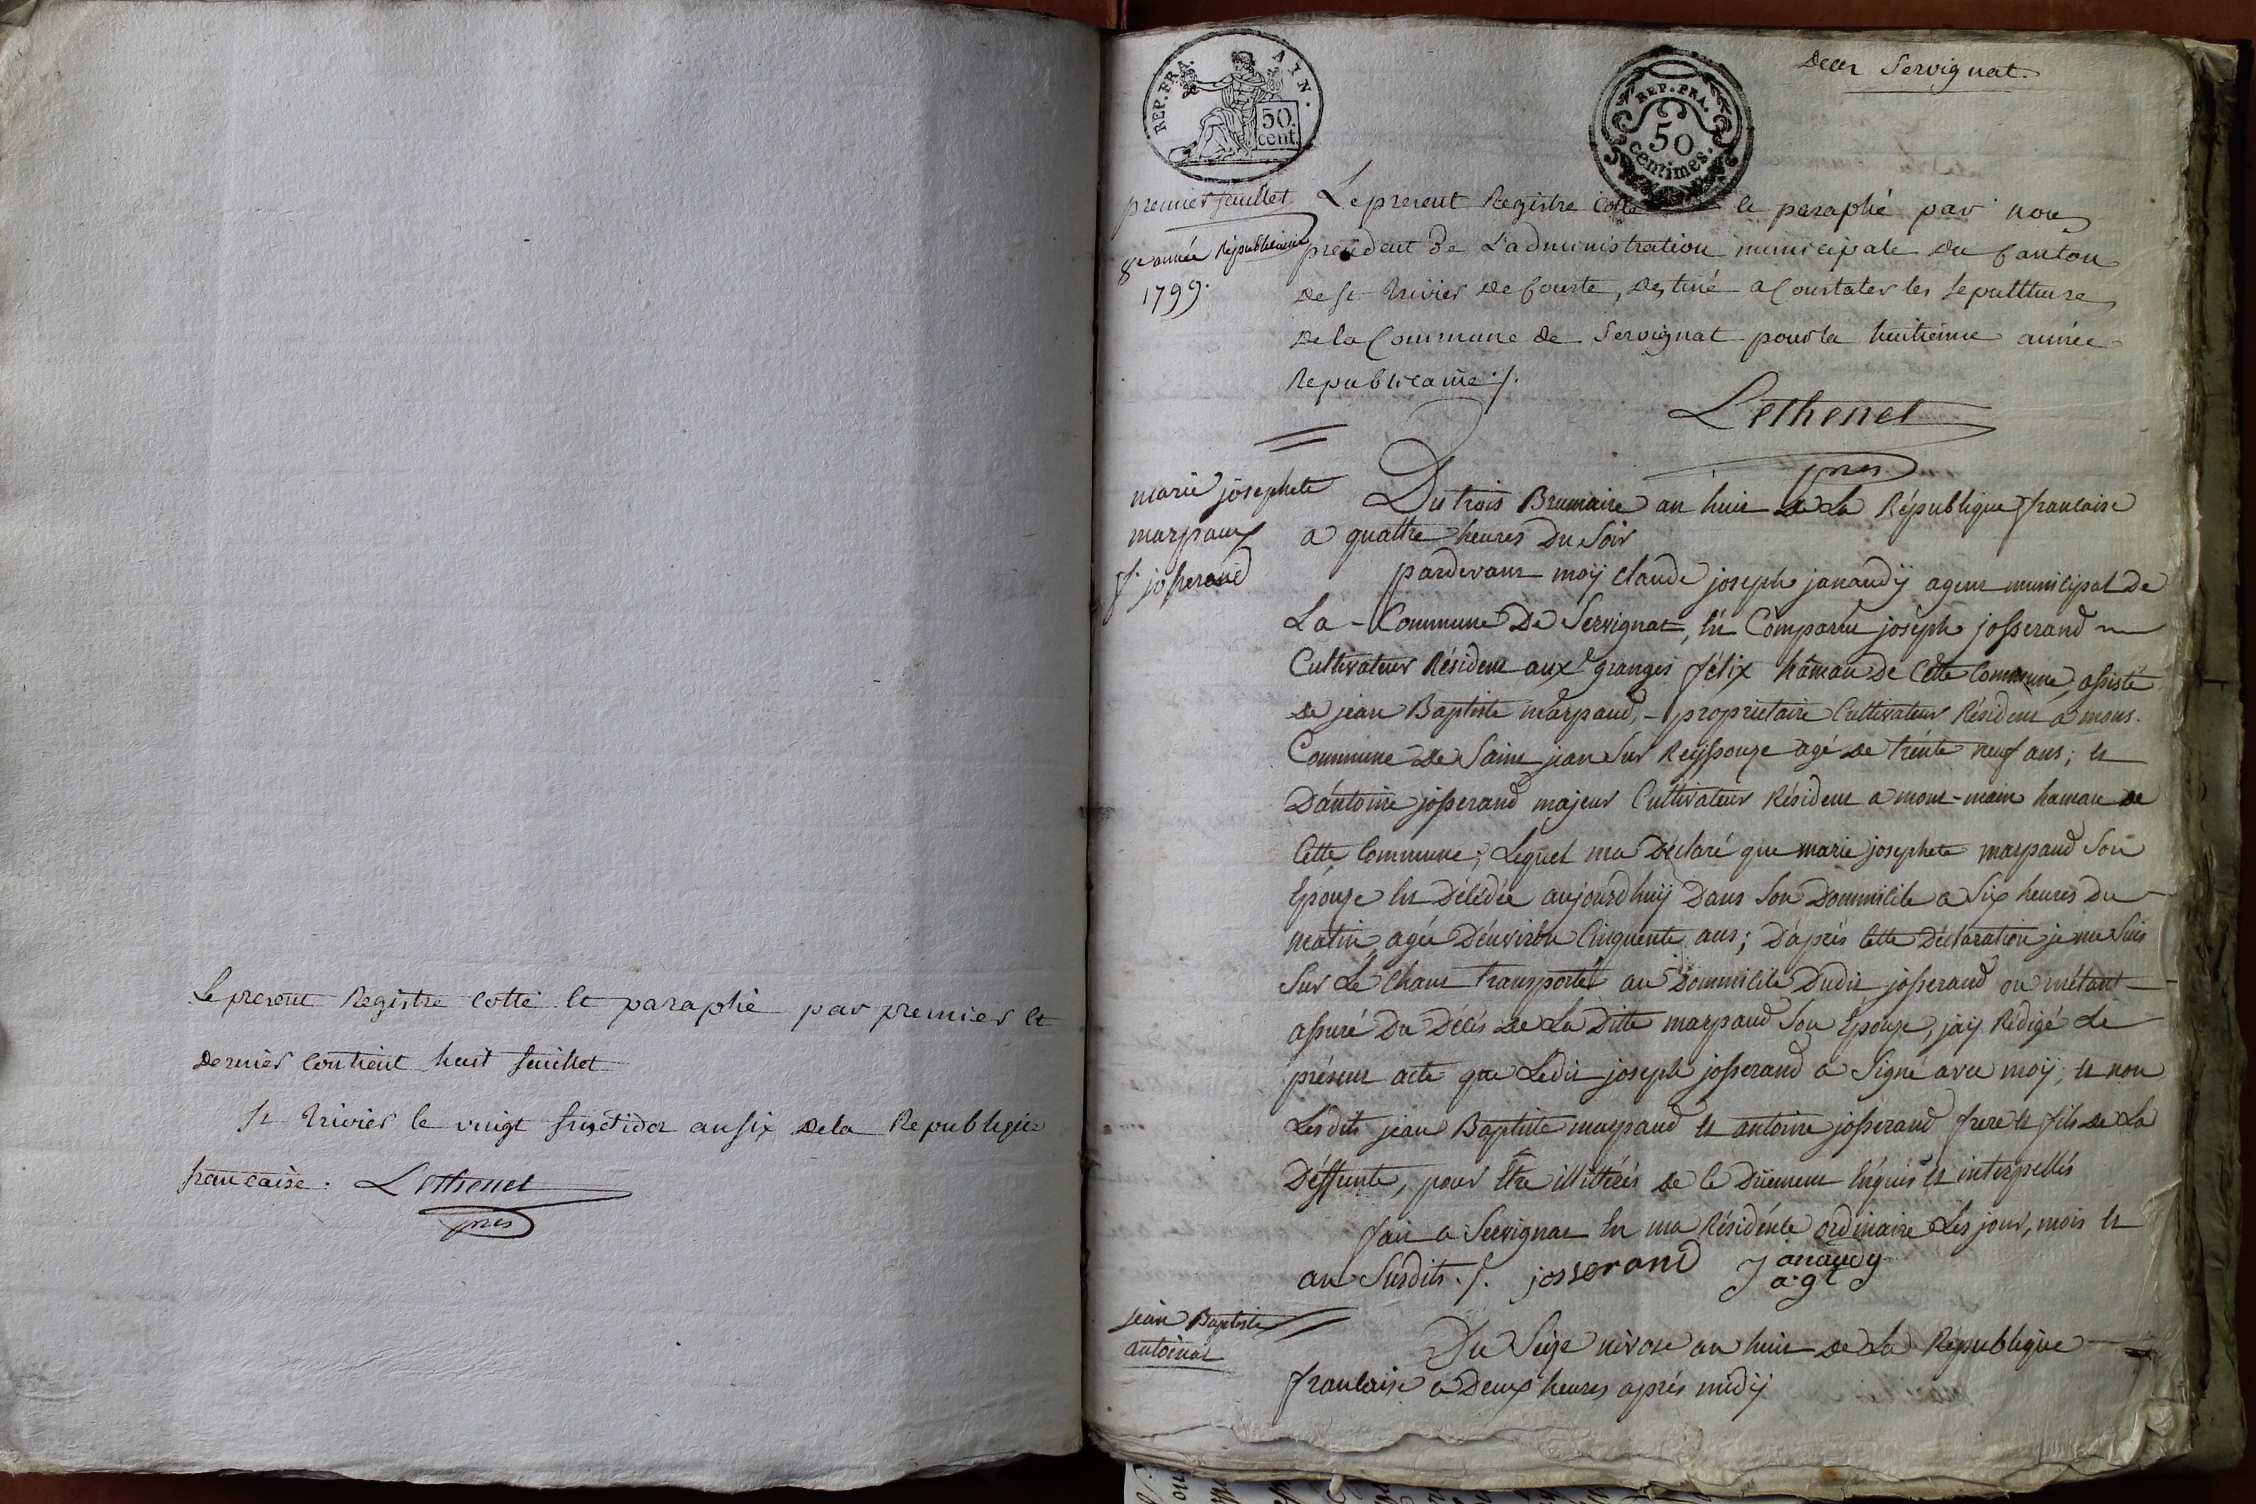 Le present Registre cotté et paraphé par premier et
dernier contient huit feuillet
St Trivier le vingt fructidor an six de la Republique
francaise. Lethenet
pres
REP. FRA. AIN.
50.
cent.
REP. FRA.
50
centimes.
Deces Servignat.
premier feuillet
8e année Républicaine
1799.
Le present Registre cotté et paraphé par nous
president de L'administration municipale du Canton
de St Trivier de Courte, destiné a Constater les sepultture
de la Commune de Servignat pour la huitieme année
Republicaine ./.
Lethenet
pres
marie josephete
marpaux
f. josserand
Du trois Brumaire an huit de La République francaise
a quattre heures Du Soir
pardevant moÿ claude joseph janaudÿ agent municipal De
La Commune De Servignat, est Comparu joseph josserand
Cultivateur Résident aux granges félix hâmau De Cette Commune, assisté
de jean Baptiste marpaud, proprietaire Cultivateur Résident a mons.
Commune de Saint jean Sur Reÿssouze agé de trente neuf ans; et
D'antoine josserand majeur Cultivateur Résident a mont-main hamau de
Cette Commune; Lequel ma Déclaré que marie josephete marpaud Son
Epouze est Décédée aujourd'huÿ Dans Son Dommicile a Six heures du
matin, agée D'environ Cinquente ans; D'après Cette Déclaration je me Suis
Sur Le Cham transporté au Dommicile Dudit josserand ou m'étant
assuré Du Décés de La Ditte marpaud Son Epouze, jaÿ Rédigé Le
présent acte que Ledit joseph josserand a Signé avec moÿ, et non
Lesdits jean Baptiste marpaud et antoine josserand frere et fils de La
Déffunte, pour Etre illittérés de ce Düement Enquis et interpellés
fait a Servignat En ma Résidence ordinaire Les jour, mois et
an Susdits ./. josserand Janaudy
agt
jean Baptiste
antoinat
Du Seize nivose an huit de La République
francaise a Deux heures après midÿ